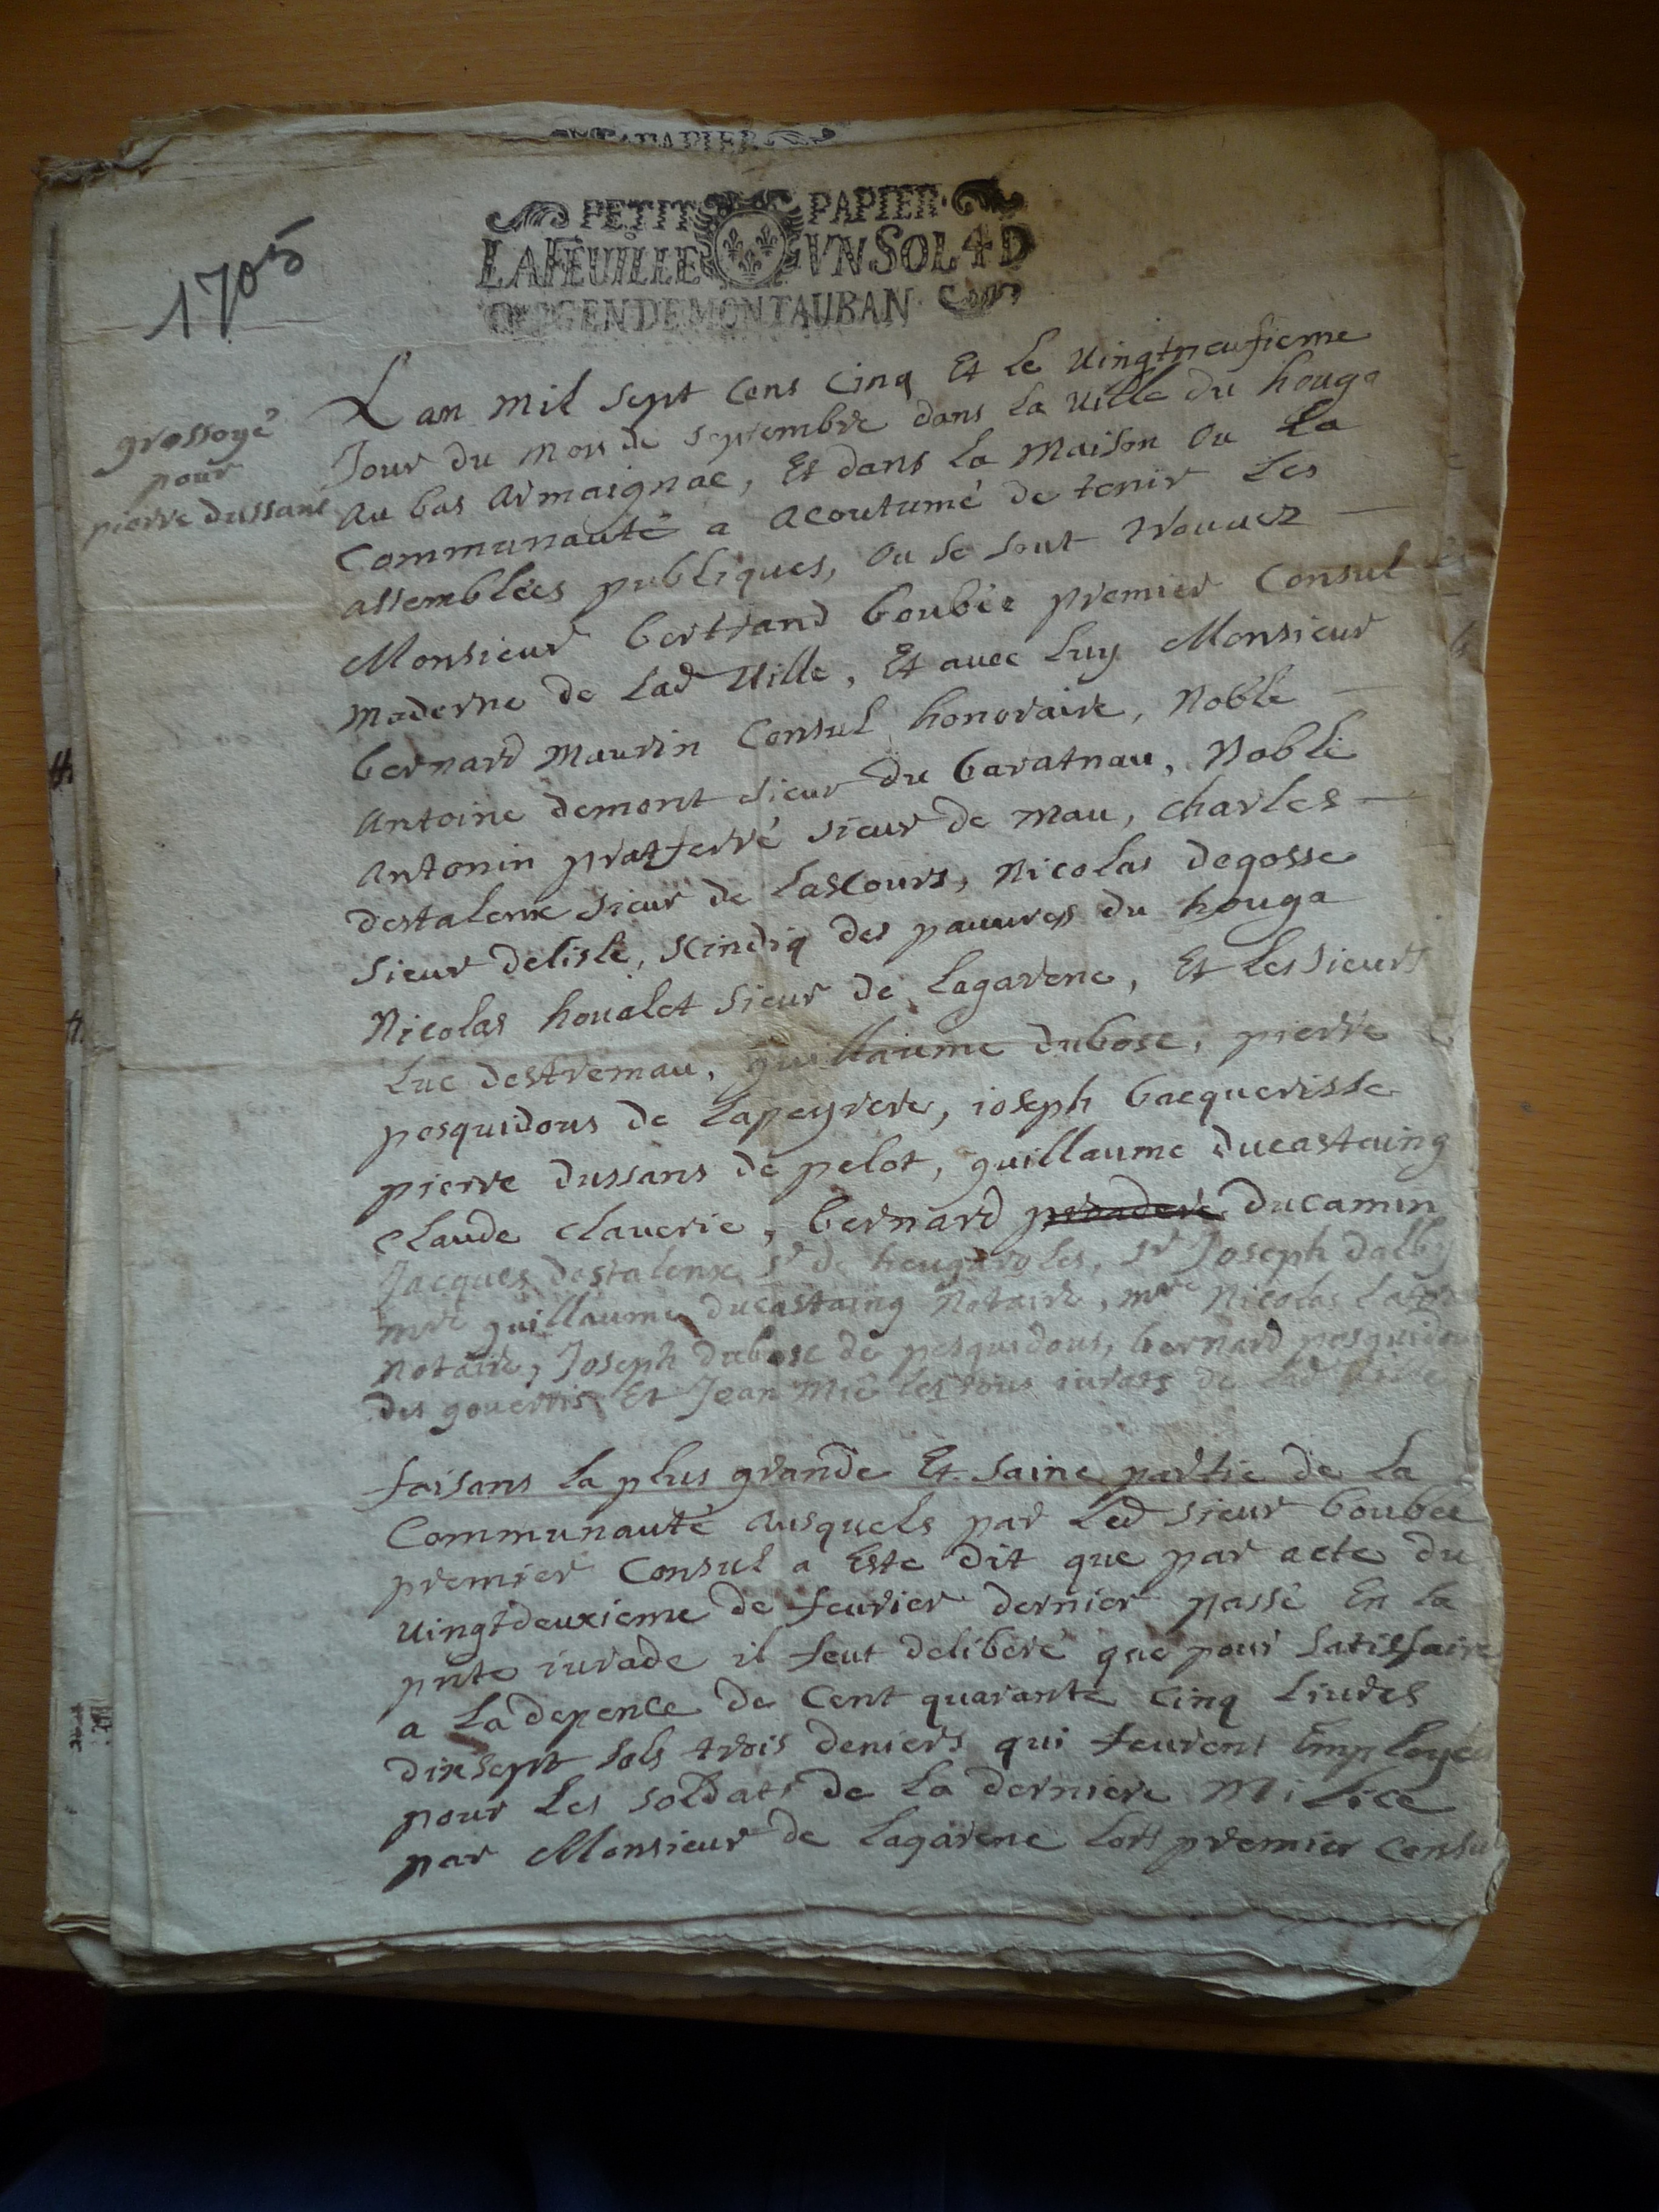 PAPIER
PETIT PAPIER
LA FEUILLE VN SOL 4 D
GEN DE MONTAUBAN
1705
grossoyé
pour
pierre dussans
L'an mil sept cens cinq Et le vingtneufieme
Jour du mois de septembre dans la ville du houga
au bas armaignac, Et dans la maison ou la
Communauté a acoutumé de tenir les
assemblées publiques, ou se sont trouuez
Monsieur bertrand boubée premier Consul
moderne de lad ville, Et auec luy Monsieur
bernard maurin Consul honoraire, Noble
antoine demont sieur du baratnau, Noble
antonin pratferré sieur de mau, charles
destalenx sieur de lascours, nicolas degosse
sieur delisle, scindiq des pauures du houga
Nicolas houalet sieur de lagarene, Et les sieurs
luc destremau, guillaume dubosc, pierre
pesquidous de lapeyrere, ioseph bacquerisse
pierre dussans de pelot, guillaume ducastaing
claude clauerie, bernard ducamin
Jacques destalenx sr de heugaroles, sr Joseph dalby
mre guillaume ducastaing Notaire, mre Nicolas
Notaire, Joseph dubosc de pesquidous, bernard pesquidous
des gouertis Et Jean tous iurats de lad ville
faisans la plus grande Et saine partie de la
Communauté ausquels par led sieur boubée
premier Consul a Este dit que par acte du
vingtdeuxieme de feurier dernier passé En la
pnte iurade il feut deliberé que pour satisfaire
a la depence de Cent quarante cinq liures
dixsept sols trois deniers qui feurent Employés
pour les soldats de la derniere Milice
par Monsieur de lagarene lors premier consul